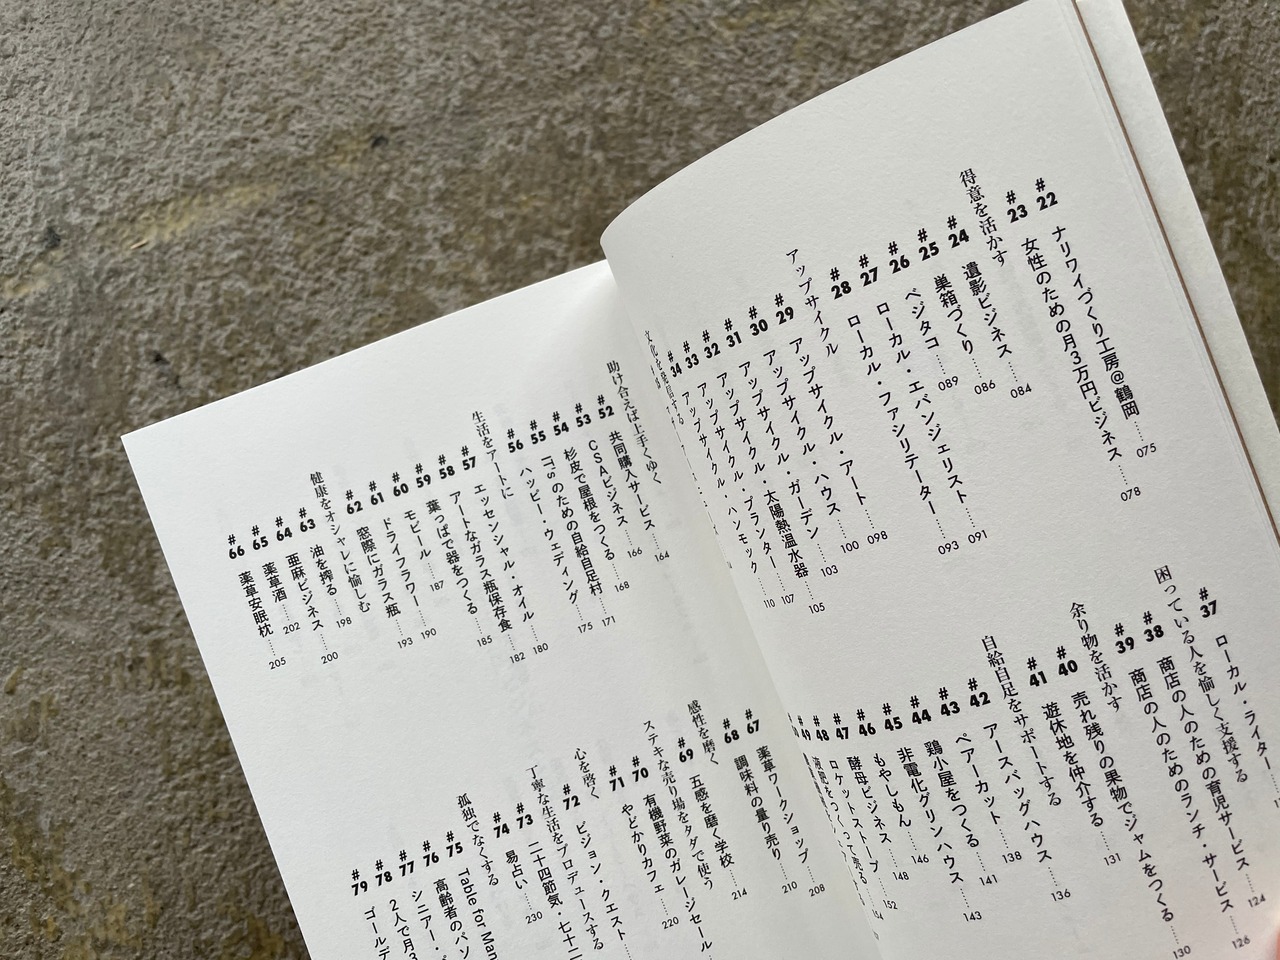 #22 ナリワイづくり工房@鶴岡……075
#23 女性のための月3万円ビジネス……078
得意を活かす
#24 遺影ビジネス……084
#25 巣箱づくり……086
#26 ベジタコ……089
#27 ローカル・エバンジェリスト……091
#28 ローカル・ファシリテーター……093
アップサイクル
#29 アップサイクル・アート……098
#30 アップサイクル・ハウス……100
#31 アップサイクル・ガーデン……103
#32 アップサイクル・太陽熱温水器……105
#33 アップサイクル・プランター……107
#34 アップサイクル・ハンモック……110
文化を発信する
#37 ローカル・ライター
困っている人を愉しく支援する
#38 商店の人のための育児サービス……124
#39 商店の人のためのランチ・サービス……126
余り物を活かす
#40 売れ残りの果物でジャムをつくる……130
#41 遊休地を仲介する……131
自給自足をサポートする
#42 アースバッグハウス……136
#43 ペアーカット……138
#44 鶏小屋をつくる……141
#45 非電化グリーンハウス……143
#46 もやしもん……146
#47 酵母ビジネス……148
#48 ロケットストーブ……152
#49
#52 共同購入サービス……164
助け合えば上手くゆく
#53 CSAビジネス……166
#54 杉皮で屋根をつくる……168
#55 ITsのための自給自足村……171
#56 ハッピー・ウェディング……175
生活をアートに
#57 エッセンシャル・オイル……180
#58 アートなガラス瓶保存食……182
#59 葉っぱで器をつくる……185
#60 モビール……187
#61 ドライフラワー……190
#62 窓際にガラス瓶……193
健康をオシャレに愉しむ
#63 油を搾る……198
#64 亜麻ビジネス……200
#65 薬草酒……202
#66 薬草安眠枕……205
#67 薬草ワークショップ……208
#68 調味料の量り売り……210
感性を磨く
#69 五感を磨く学校……214
ステキな売り場をタダで使う
#70 有機野菜のガレージセール
#71 やどかりカフェ……220
心を啓く
#72 ビジョン・クエスト
丁寧な生活をプロデュースする
#73 二十四節気・七十二
#74 易占い……230
孤独でなくする
#75 Table for
#76 高齢者のパソ
#77 シニアー・
#78 2人で月3
#79 ゴールデ